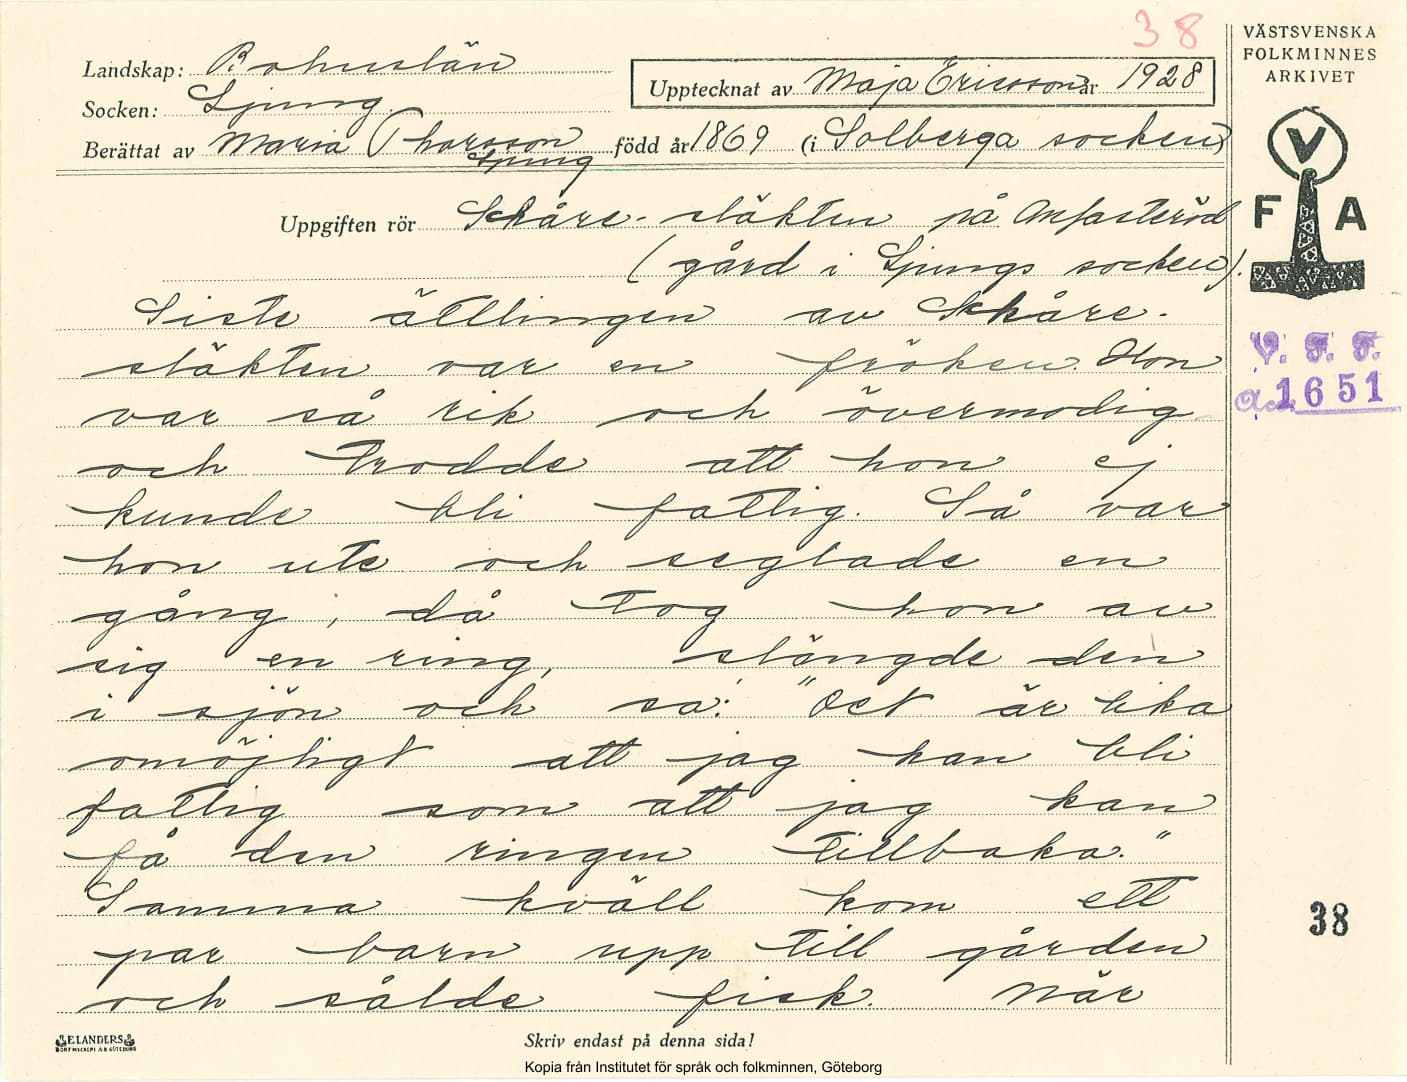 38
VÄSTSVENSKA
FOLKMINNES
ARKIVET
Landskap: Bohuslän
Upptecknat av Maja Ericsson år 1928
Socken: Ljung
Berättat av Maria Thorsson född år 1869 (i Solberga socken)
Ljung
V
F A
Uppgiften rör Skåre-släkten på Anfasteröd
(gård i Ljungs socken).
V. F. F.
Acc. 1651
Siste ättlingen av Skåre-
släkten var en fröken. Hon
var så rik och övermodig
och trodde att hon ej
kunde bli fattig. Så var
hon ute och seglade en
gång, då tog hon av
sig en ring, slängde den
i sjön och sa: "Det är lika
omöjligt att jag kan bli
fattig som att jag kan
få den ringen tillbaka."
Samma kväll kom ett
par barn upp till gården
och sålde fisk. När
38
ELANDERS
BOKTRYCKERI A.B. GÖTEBORG
Skriv endast på denna sida!
Kopia från Institutet för språk och folkminnen, Göteborg